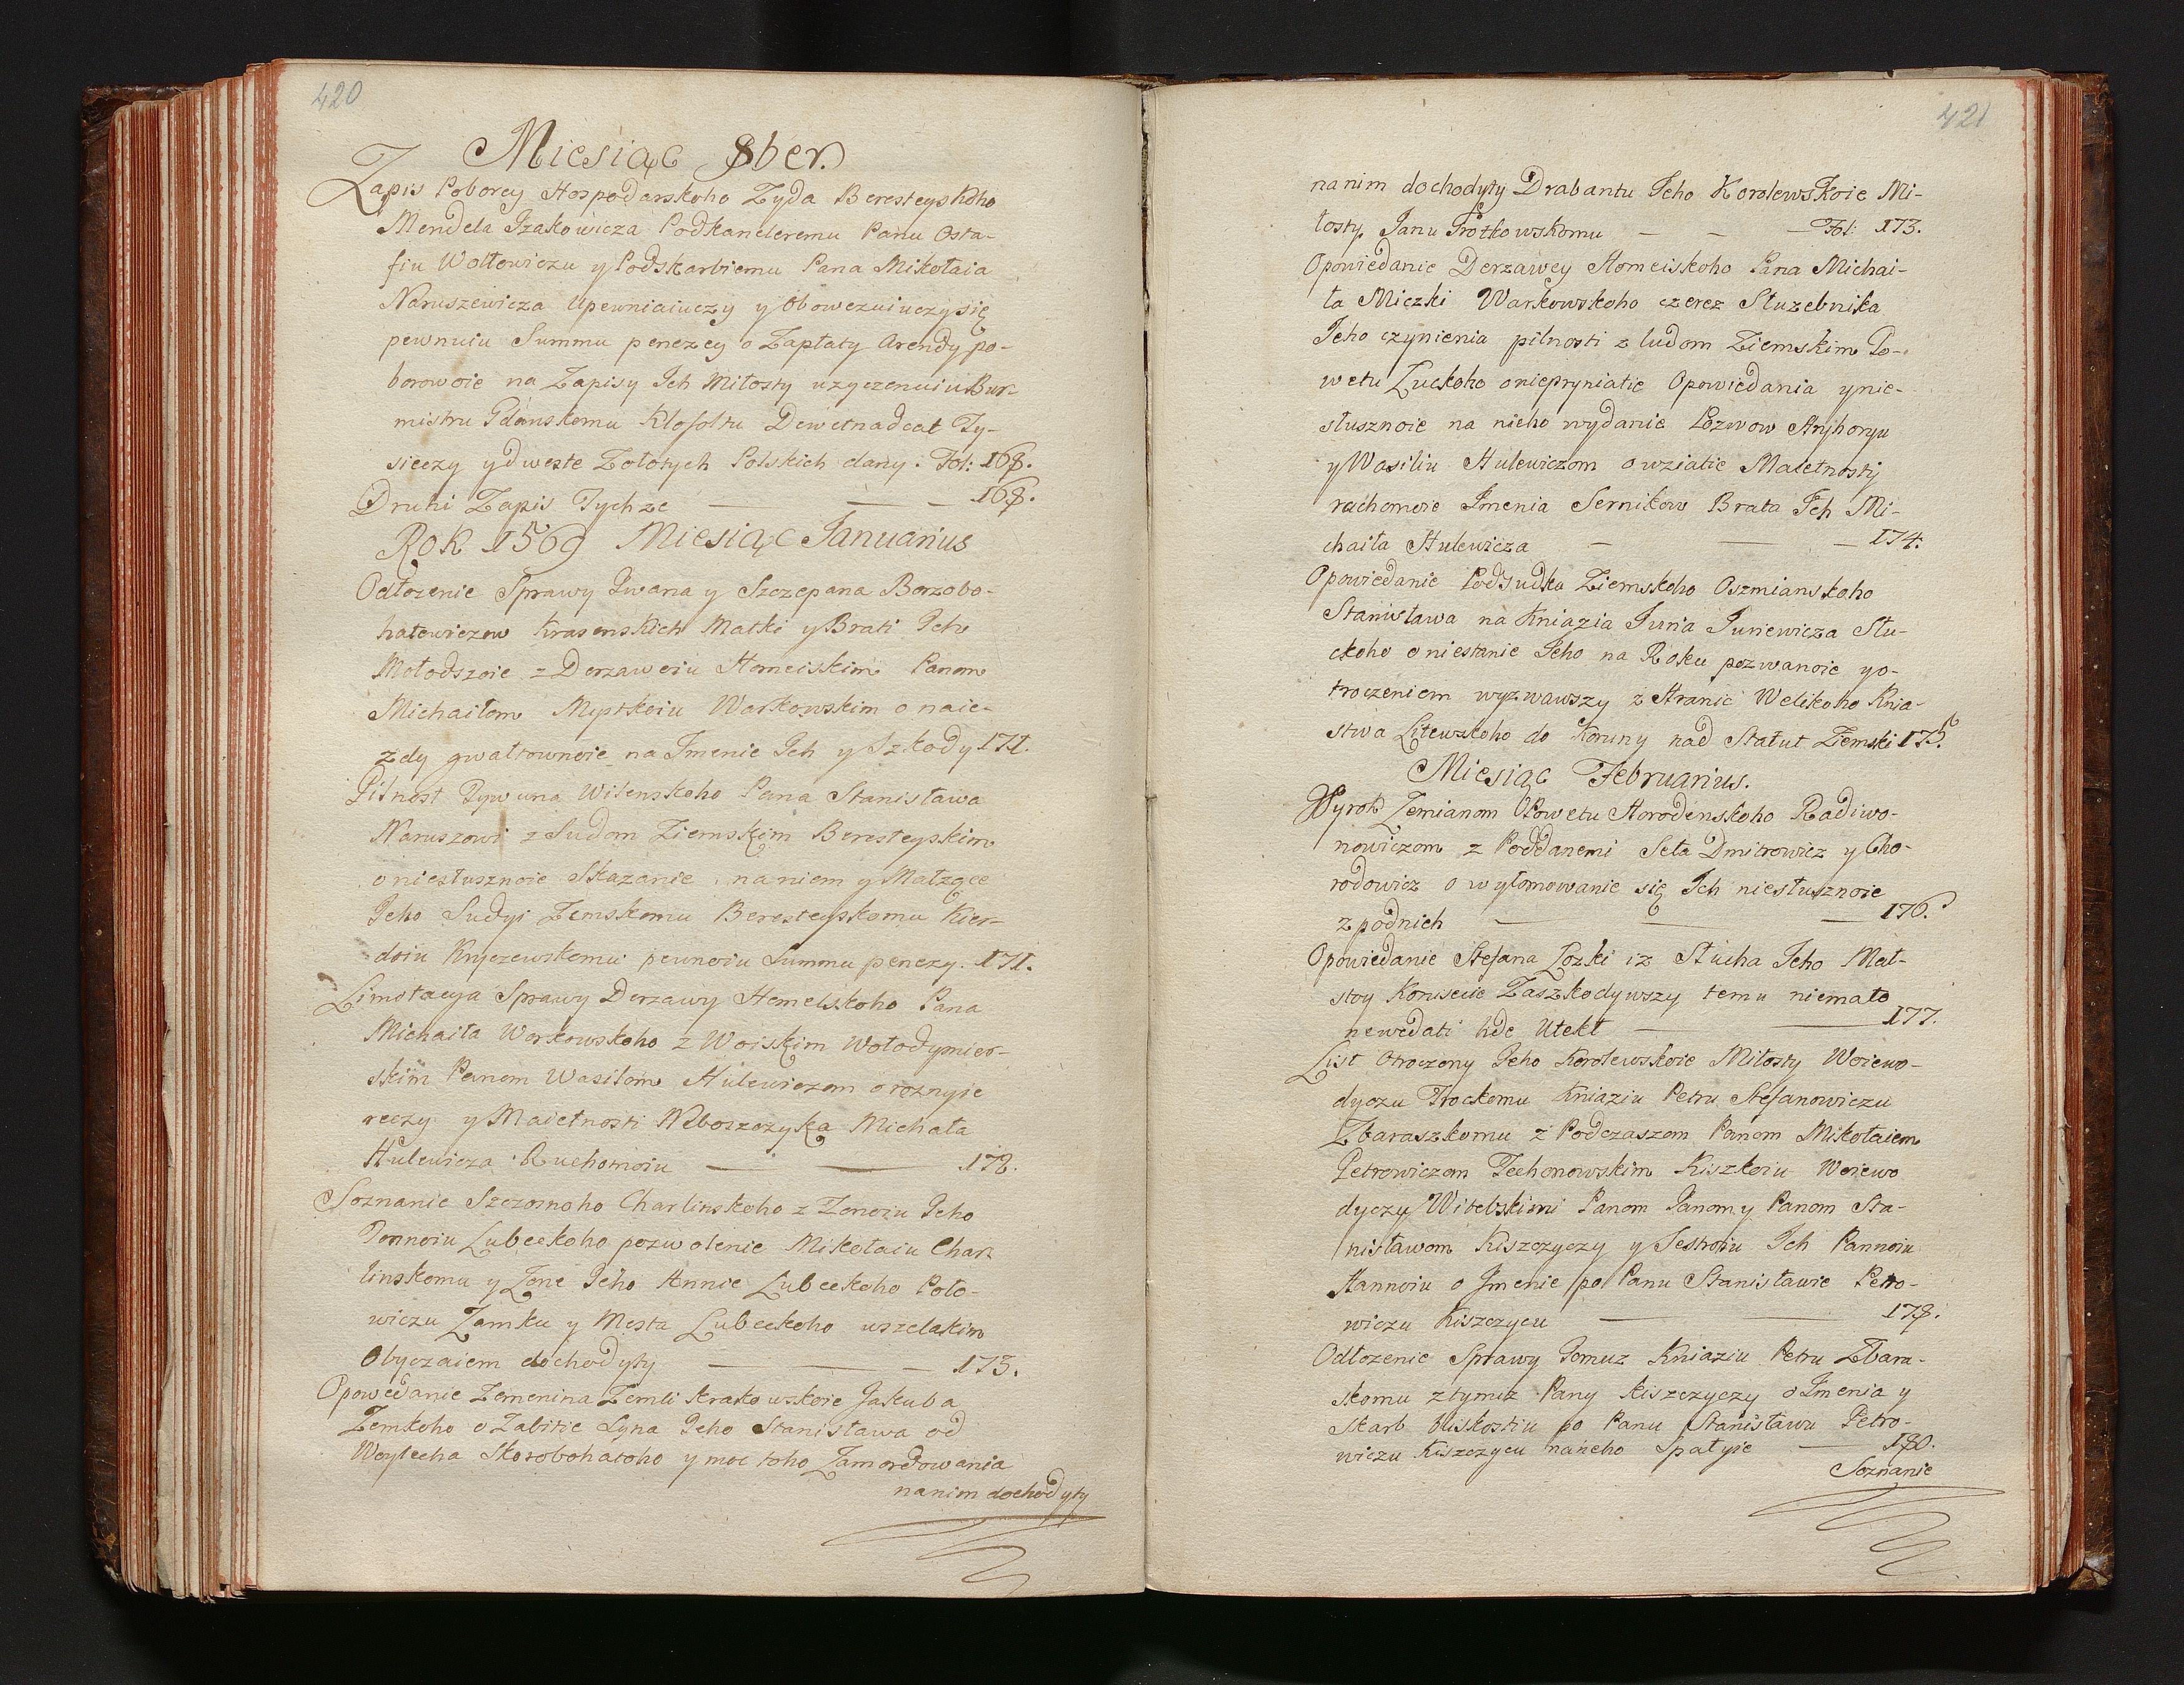 420
Miesiąc 8ber.
Zapis Poborcy Hospodarskoho Zyda Beresteyskoho
Mendela Izakowicza Podkancleremu Panu Osta-
fiu Wołłowiczu y Podskarbiemu Pana Mikołaia
Naruszewicza Upewniaiuczy y Obowezuiuczy się
pewnuiu Summu penezey o Zapłaty Arendy po-
borowoie na Zapisy Ich Miłosty uzyczenuiu Bur-
mistru Gdanskomu Klofoltu Dewetnadcat Ty-
sieczy y dweste Zołotych Polskich dany. Fol: 168.
Druhi Zapis Tychze — — — 168.
Rok 1569 Miesiąc Ianuarius
Odłozenie Sprawy Iwana y Szczepana Borzobo-
hatewiczow Krasenskich Matki y Brati Ich
Mołodszoie z Derzaweiu Homeiskim Panom
Michaiłom Myszkoiu Warkowskim o naie-
zdy gwałtownoie na Imenie Ich y Szkody 171.
Pilnost Tywuna Wilenskoho Pana Stanisława
Naruszowi z Sudom Ziemskim Beresteyskim
o niesłusznoie Skazanie na niem y Małzące
Jeho Sudyi Zemskomu Beresteyskomu Kier-
doiu Kryczewskomu pewnoiu Summu penezy. 171.
Limotacya Sprawy Derzawy Hemelskoho Pana
Michaiła Workowskoho z Woiskim Wołodymier-
skim Panom Wasilom Hulewiczom o roznyie
reczy y Maietnosti Nboszczyka Michała
Hulewicza Ruchomoiu — — 172.
Soznanie Szczęsnoho Charlinskoho z Zonoiu Jeho
Lubeckoho pozwolenie Mikołaiu Char-
linskomu y Zone Jeho Annie Lubeckoho Poło-
wiczu Zamku y Mesta Lubeckoho wszelakim
Obyczaiem dochodyty — — 173.
Opowedanie Zemenina Zemli Krakowskoie Jakuba
Zemkoho o Zabitie Syna Jeho Stanisława od
Woytecha Skorobohatoho y moc toho Zamordowania
na nim dochodyty
421
na nim dochodyty Drabantu Jeho Korolewskoie Mi-
łosty Janu Trotkowskomu — — — Fol: 173.
Opowiedanie Derzawcy Homeiskoho Pana Michai-
ła Miczki Warkowskoho czerez Służebnika
Jeho czynienia pilnosti z ludom Ziemskim Po-
wetu Łuckoho o niepryniatie Opowiedania y nie-
słusznoie na nieho wydanie Pozwow Hryhoryu
y Wasiliu Hulewiczom o wziatie Maietnosty
ruchomoie Imenia Sernikow Brata Ich Mi-
chaiła Hulewicza — — — 174.
Opowiedanie Podsudka Ziemskoho Oszmianskoho
Stanisława na Kniazia Juria Juriewicza Słu-
ckoho o niestanie Jeho na Roku pozwanoie y o-
troczeniem wyzwawszy z Hranic Welikoho Knia-
stwa Litewskoho do Koruny nad Statut Ziemski 175.
Miesiąc Februarius.
Wyrok Zemianom Powetu Horodenskoho Radiwo-
nowiczom z Poddanemi Seła Dmitrowicz y Cho-
rodowicz o wyłomowanie się Ich niesłusznoie
z pod nich — — — 176.
Opowiedanie Stefana Łozki iz Słucha Jeho Mał-
stoy Konsecie Zaszkodywszy temu niemało
newedati hde Utekł — — 177.
List Otroczony Jeho Korolewskoie Miłosty Woiewo-
dyczu Trockomu Kniaziu Petru Stefanowiczu
Zbaraszkomu z Podczaszom Panom Mikołaiem
Petrowiczom Techonowskim Kiszkoiu Woiewo
dyczy Witebskimi Panom Janom y Panom Sta-
nisławom Kiszczyczy y Sestroiu Ich Pannoiu
Hannoiu o Imenie po Panu Stanisławie Petro-
wiczu Kiszczycu — — 178.
Odłozenie Sprawy Tomuz Kniaziu Petru Zbara-
skomu z tymiz Pany Kiszczyczy o Imenia y
Skarb bliskostiu po Panu Stanisławu Petro-
wiczu Kiszczycu naneho Spałyie — 180.
Soznanie